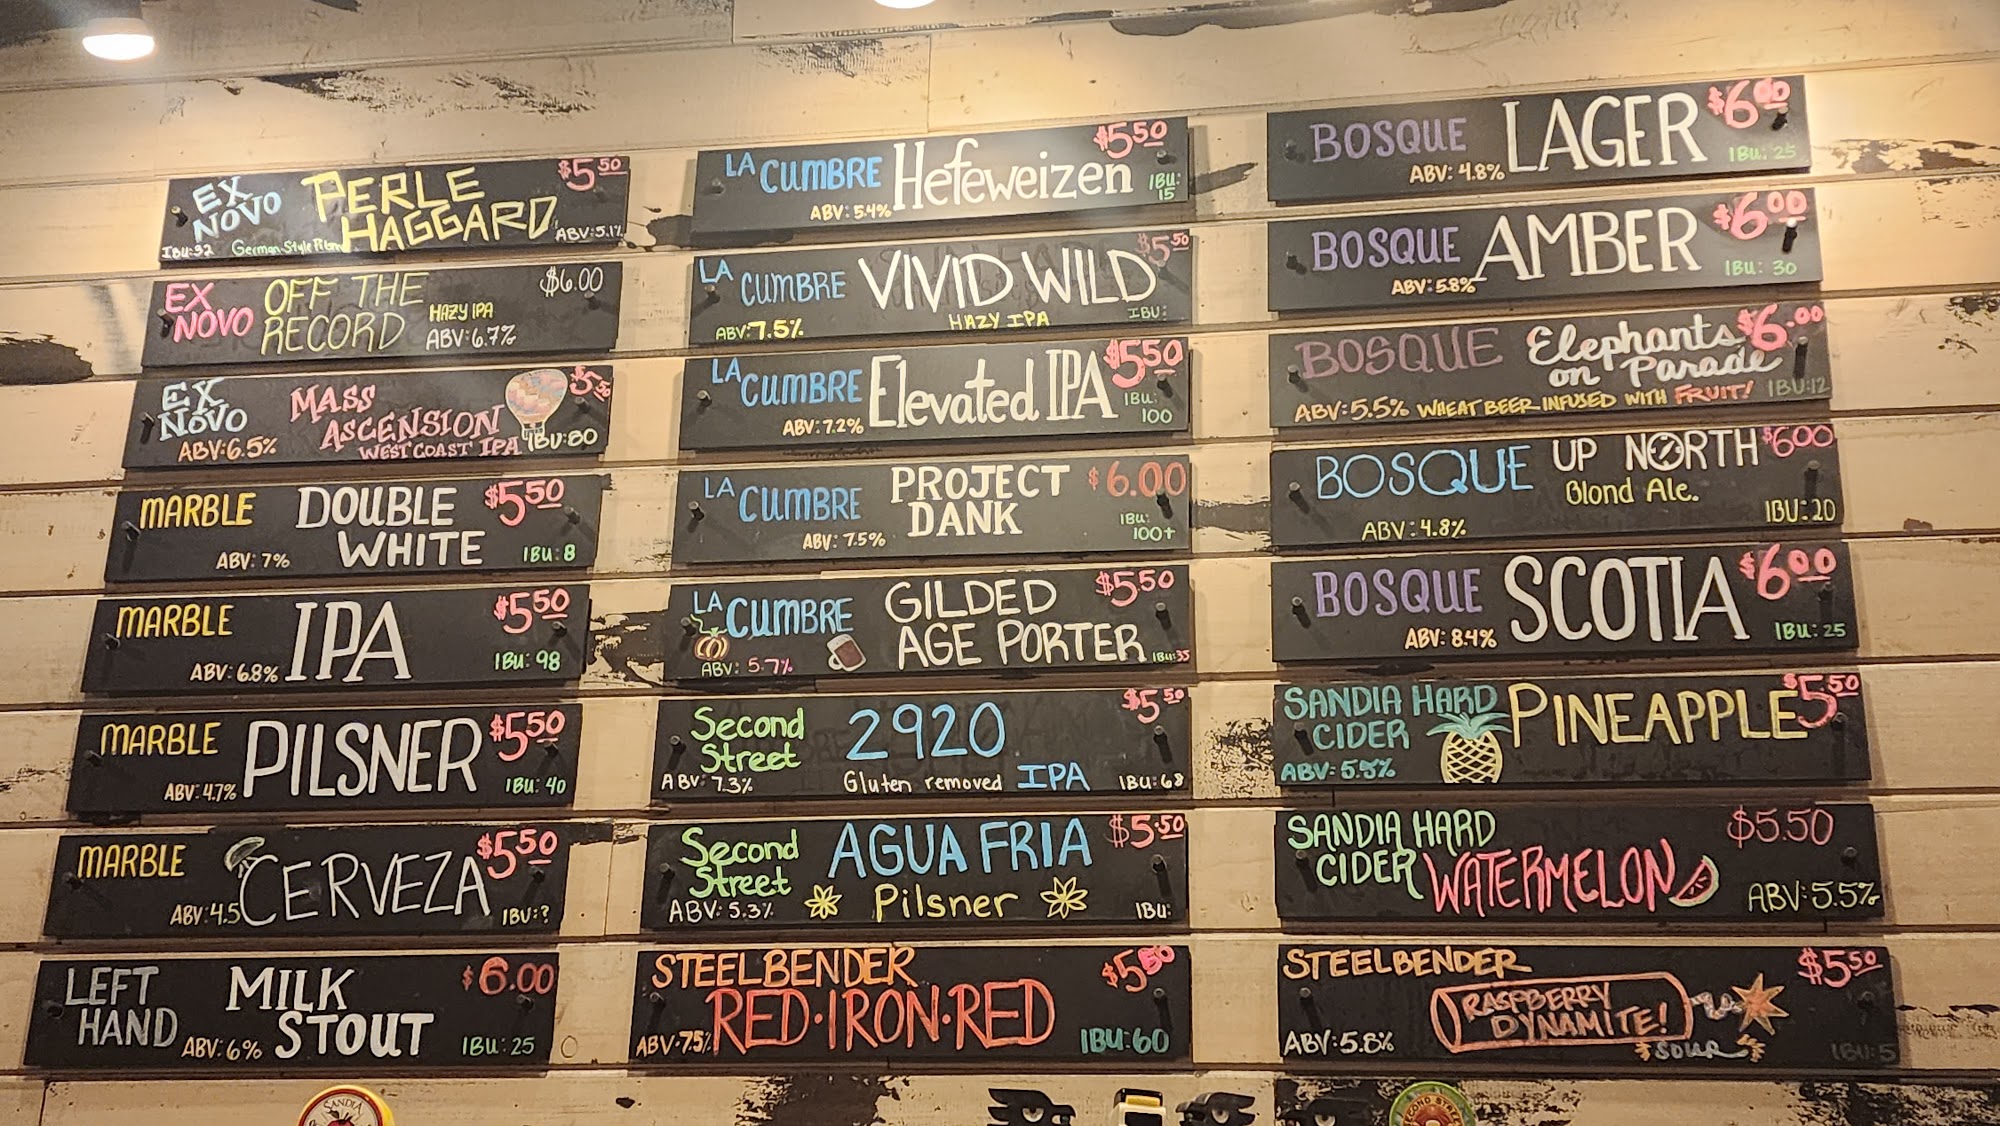 EX NOVO PERLE HAGGARD $5.50
IBU:32 German-Style Pilsner ABV:5.1%
EX NOVO OFF THE RECORD HAZY IPA ABV:6.7% $6.00
EX NOVO MASS ASCENSION $5.50
ABV:6.5% WEST COAST IPA IBU:80
MARBLE DOUBLE WHITE $5.50
ABV: 7% IBU: 8
MARBLE IPA $5.50
ABV: 6.8% IBU: 98
MARBLE PILSNER $5.50
ABV: 4.7% IBU: 40
MARBLE CERVEZA $5.50
ABV: 4.5 IBU:?
LEFT HAND MILK STOUT $6.00
ABV: 6% IBU: 25
LA CUMBRE Hefeweizen $5.50
ABV: 5.4% IBU: 15
LA CUMBRE VIVID WILD $5.50
ABV:7.5% HAZY IPA IBU:
LA CUMBRE Elevated IPA $5.50
ABV: 7.2% IBU: 100
LA CUMBRE PROJECT DANK $6.00
ABV: 7.5% IBU: 100+
LA CUMBRE GILDED AGE PORTER $5.50
ABV: 5.7% IBU:35
Second Street 2920 $5.50
ABV: 7.3% Gluten removed IPA IBU:68
Second Street AGUA FRIA $5.50
ABV: 5.3% Pilsner IBU:
STEELBENDER RED·IRON·RED $5.50
ABV 7.5% IBU:60
BOSQUE LAGER $6.00
ABV: 4.8% IBU: 25
BOSQUE AMBER $6.00
ABV: 5.8% IBU: 30
BOSQUE Elephants on Parade $6.00
ABV:5.5% WHEAT BEER INFUSED WITH FRUIT! IBU:12
BOSQUE UP NORTH $6.00
Blond Ale.
ABV:4.8% IBU:20
BOSQUE SCOTIA $6.00
ABV: 8.4% IBU: 25
SANDIA HARD CIDER PINEAPPLE $5.50
ABV: 5.5%
SANDIA HARD CIDER WATERMELON $5.50
ABV:5.5%
STEELBENDER RASPBERRY DYNAMITE! $5.50
ABV:5.8% SOUR IBU:5
SANDIA